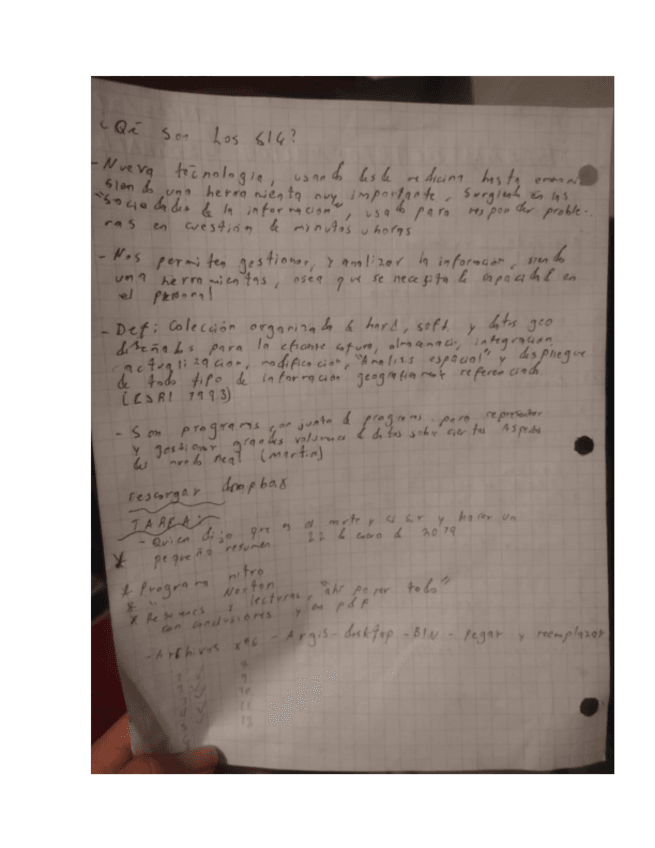 ¿Qué son Los SIG?
- Nueva tecnologia, usando desde medicina hasta
siendo una herramienta muy importante, Surgiendo en las
"Sociedades de la información", usado para responder proble-
mas en cuestión de minutos u horas
- Nos permiten gestionar, y analizar la información, siendo
una herramientas, osea que se necesita de capacidad en
el personal
- Def: Colección organizada de hard, soft. y datos geo
diseñados para la eficiente captura, almacenar, integracion,
actualización, modificacion, "Analisis espacial" y despliegue
de todo tipo de información geograficamente referenciada.
(ESRI 1993)
- Son programs, conjunto de programs para representar
y gestionar grandes volumenes de datos sobre ciertos aspectos
del mundo real (martin)
descargar dropbox
TAREA:
- Quien dijo que y hacer un
pequeño resumen 22 de enero de 2019
* Programa nitro
* " Norton
* Resumenes y lecturas, "ahi poner todo"
con conclusiones y en pdf
- Archivos x86 - Argis - desktop - BIN - pegar y reemplazar
8
9
10
11